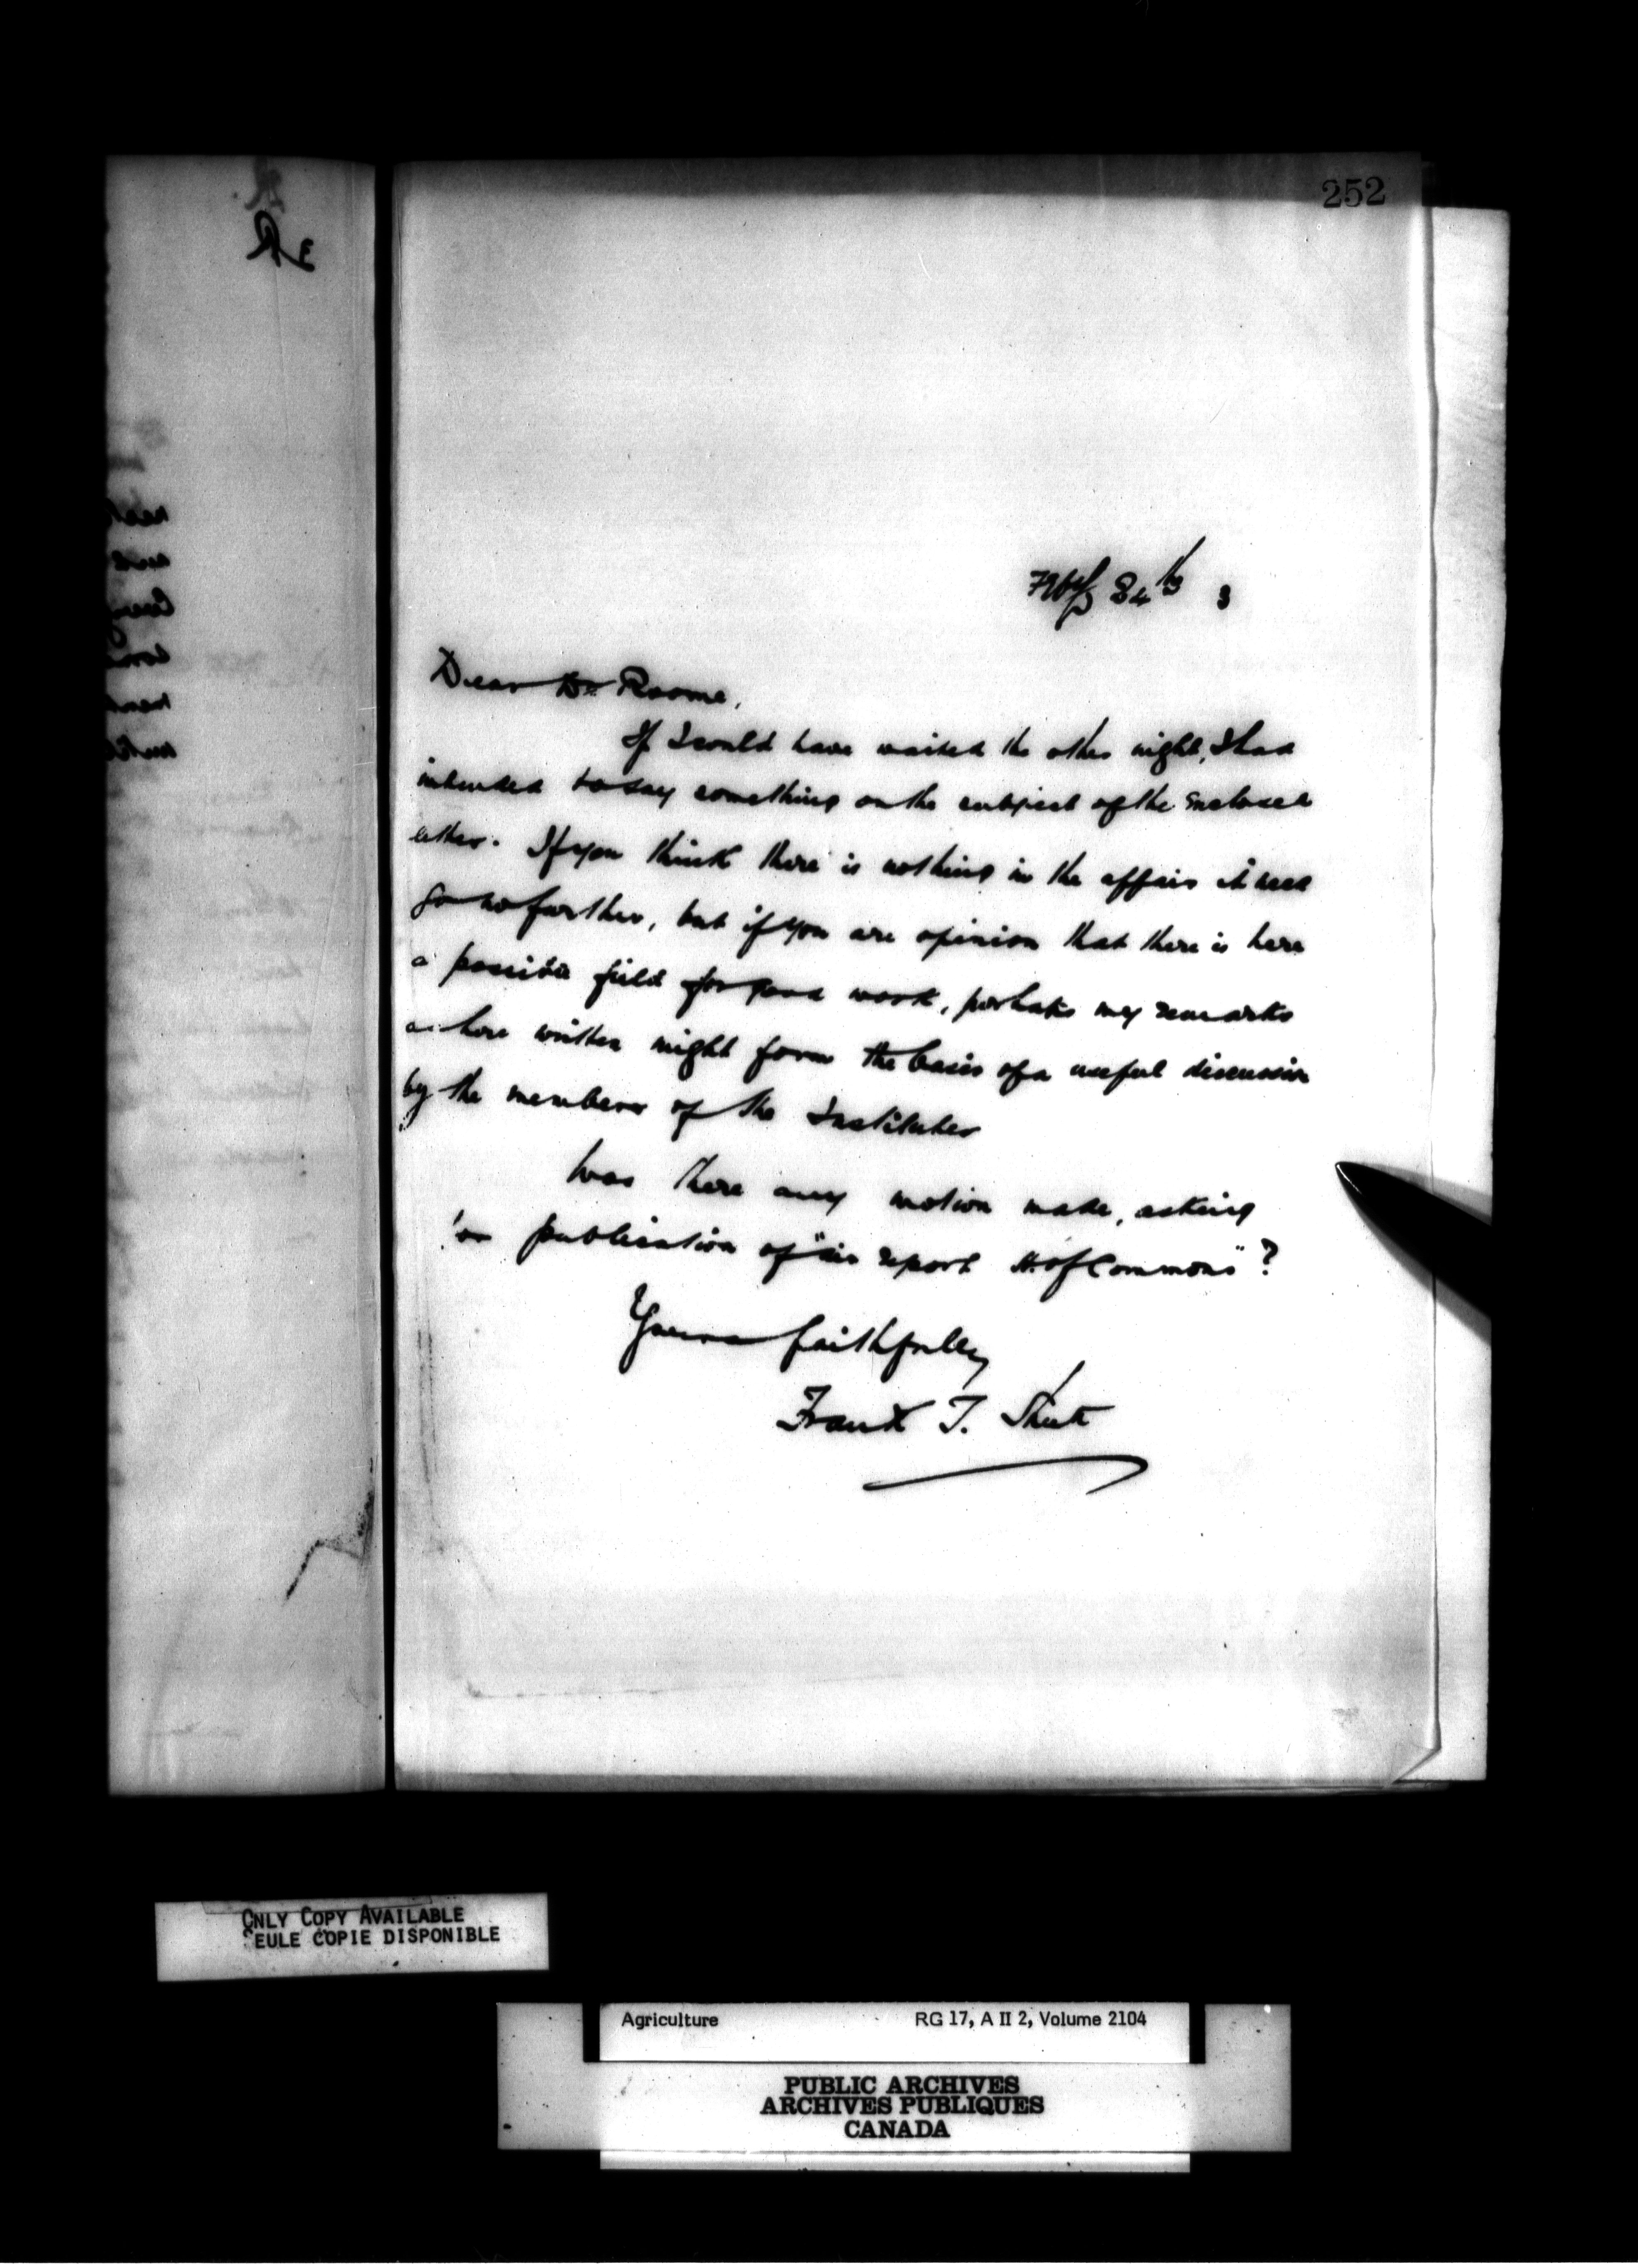 252
Dear Dr Roome,
If I could have waited the other night, I had
intended to say something on the subject of the enclosed
letter. If you think there is nothing in the affair it need
go no further, but if you are opinion that there is here
a possible field for good work, perhaps my remarks
as here written might form the basis of a useful discussion
by the members of the Institutes
Was there any motion made, asking
for publication of " report H. of Commons" ?
Yours faithfully
Frank T. Shutt
ONLY COPY AVAILABLE
SEULE COPIE DISPONIBLE
Agriculture RG 17, A II 2, Volume 2104
PUBLIC ARCHIVES
ARCHIVES PUBLIQUES
CANADA